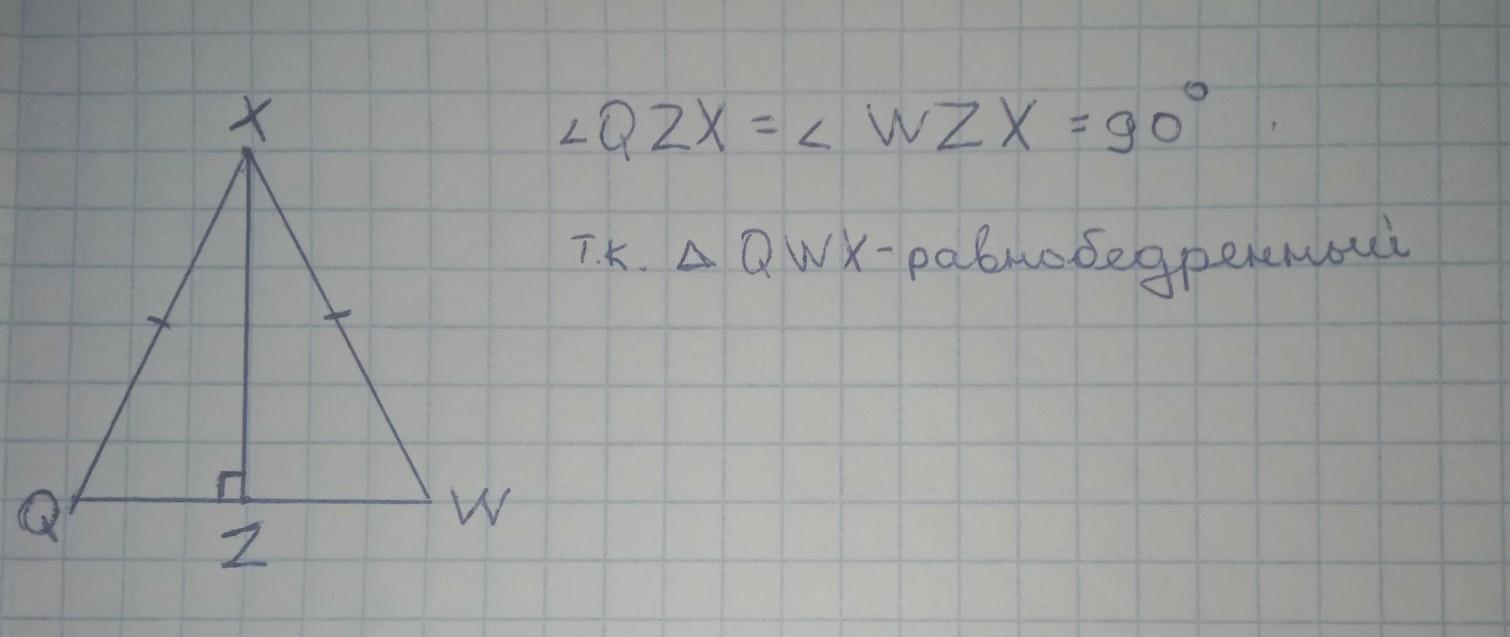 X
∠QZX = ∠ WZX = 90°
т.к. △ QWX - равнобедренный
Q
W
Z